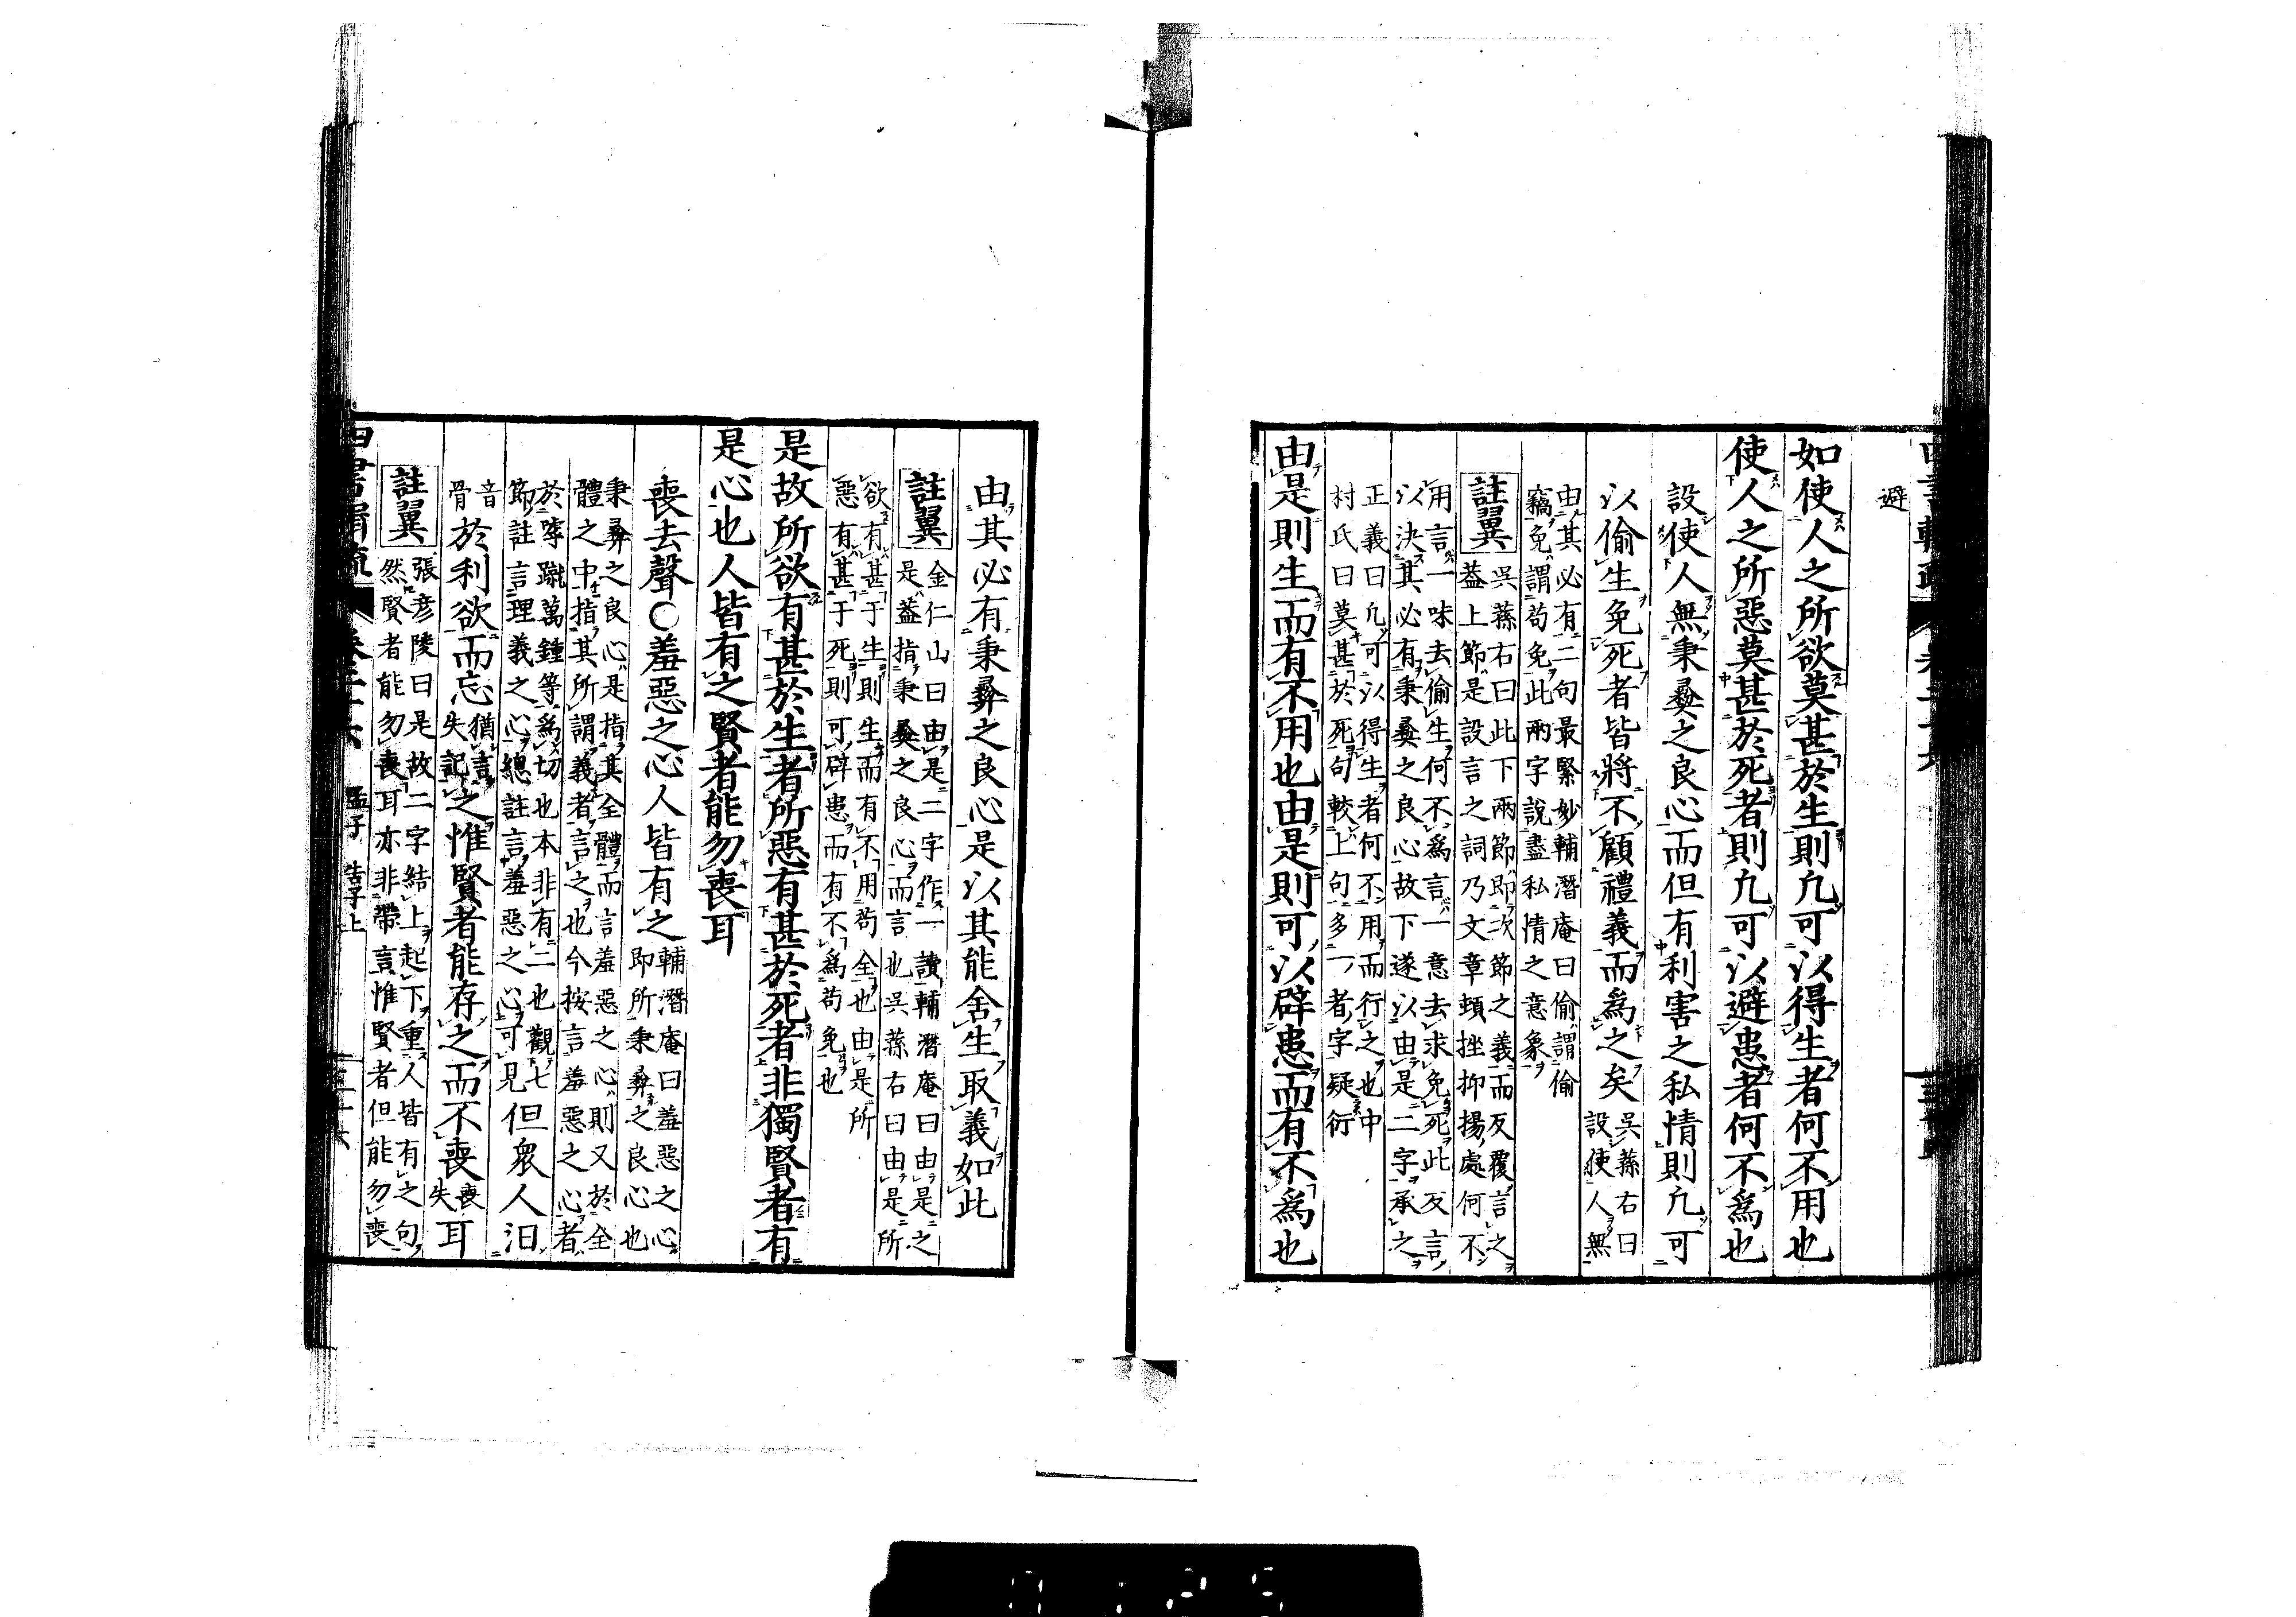 避
如使人之所欲莫甚於生則凢可以得生者何不用也
使人之所惡莫甚於死者則凢可以避患者何不爲也
設使人無秉彜之良心而但有利害之私情則凢可
以偷生免死者皆將不顧禮義而爲之矣
吳蓀右曰
設使人無
由其必有二句最緊妙輔潛庵曰偷謂偷
竊免謂苟免此兩字說盡私情之意象
註翼
吳蓀右曰此下兩節即次節之義而反覆言之
蓋上節是設言之詞乃文章頓挫抑揚處何不
用言一味去偷生何不爲言一意去求免死此反言
以決其必有秉彜之良心故下遂以由是二字承之
正義曰凢可以得生者何不用而行之也中
村氏曰莫甚於死句較上句多一者字疑衍
由是則生而有不用也由是則可以辟患而有不爲也
由其必有秉彜之良心是以其能舍生取義如此
註翼
金仁山曰由是二字作一讀輔潛庵曰由是之
是蓋指秉彜之良心而言也吳蓀右曰由是所
欲有甚于生則生而有不用苟全也由是所
惡有甚于死則可辟患而有不爲苟免也
是故所欲有甚於生者所惡有甚於死者非獨賢者有
是心也人皆有之賢者能勿喪耳
喪去聲〇羞惡之心人皆有之
輔潛庵曰羞惡之心
即所秉彜之良心也
秉彜之良心是指其全體而言羞惡之心則又於全
體之中指其所謂義者言之也今按言羞惡之心者
於嘑蹴萬鍾等爲切也本非有二也觀七
節註言理義之心總註言羞惡之心可見
但衆人汨
音
骨
於利欲而忘
猶言
失記
之惟賢者能存之而不喪
喪
失
耳
註翼
張彦陵曰是故二字結上起下重人皆有之句
然賢者能勿喪耳亦非帶言惟賢者但能勿喪
孟子 告子上